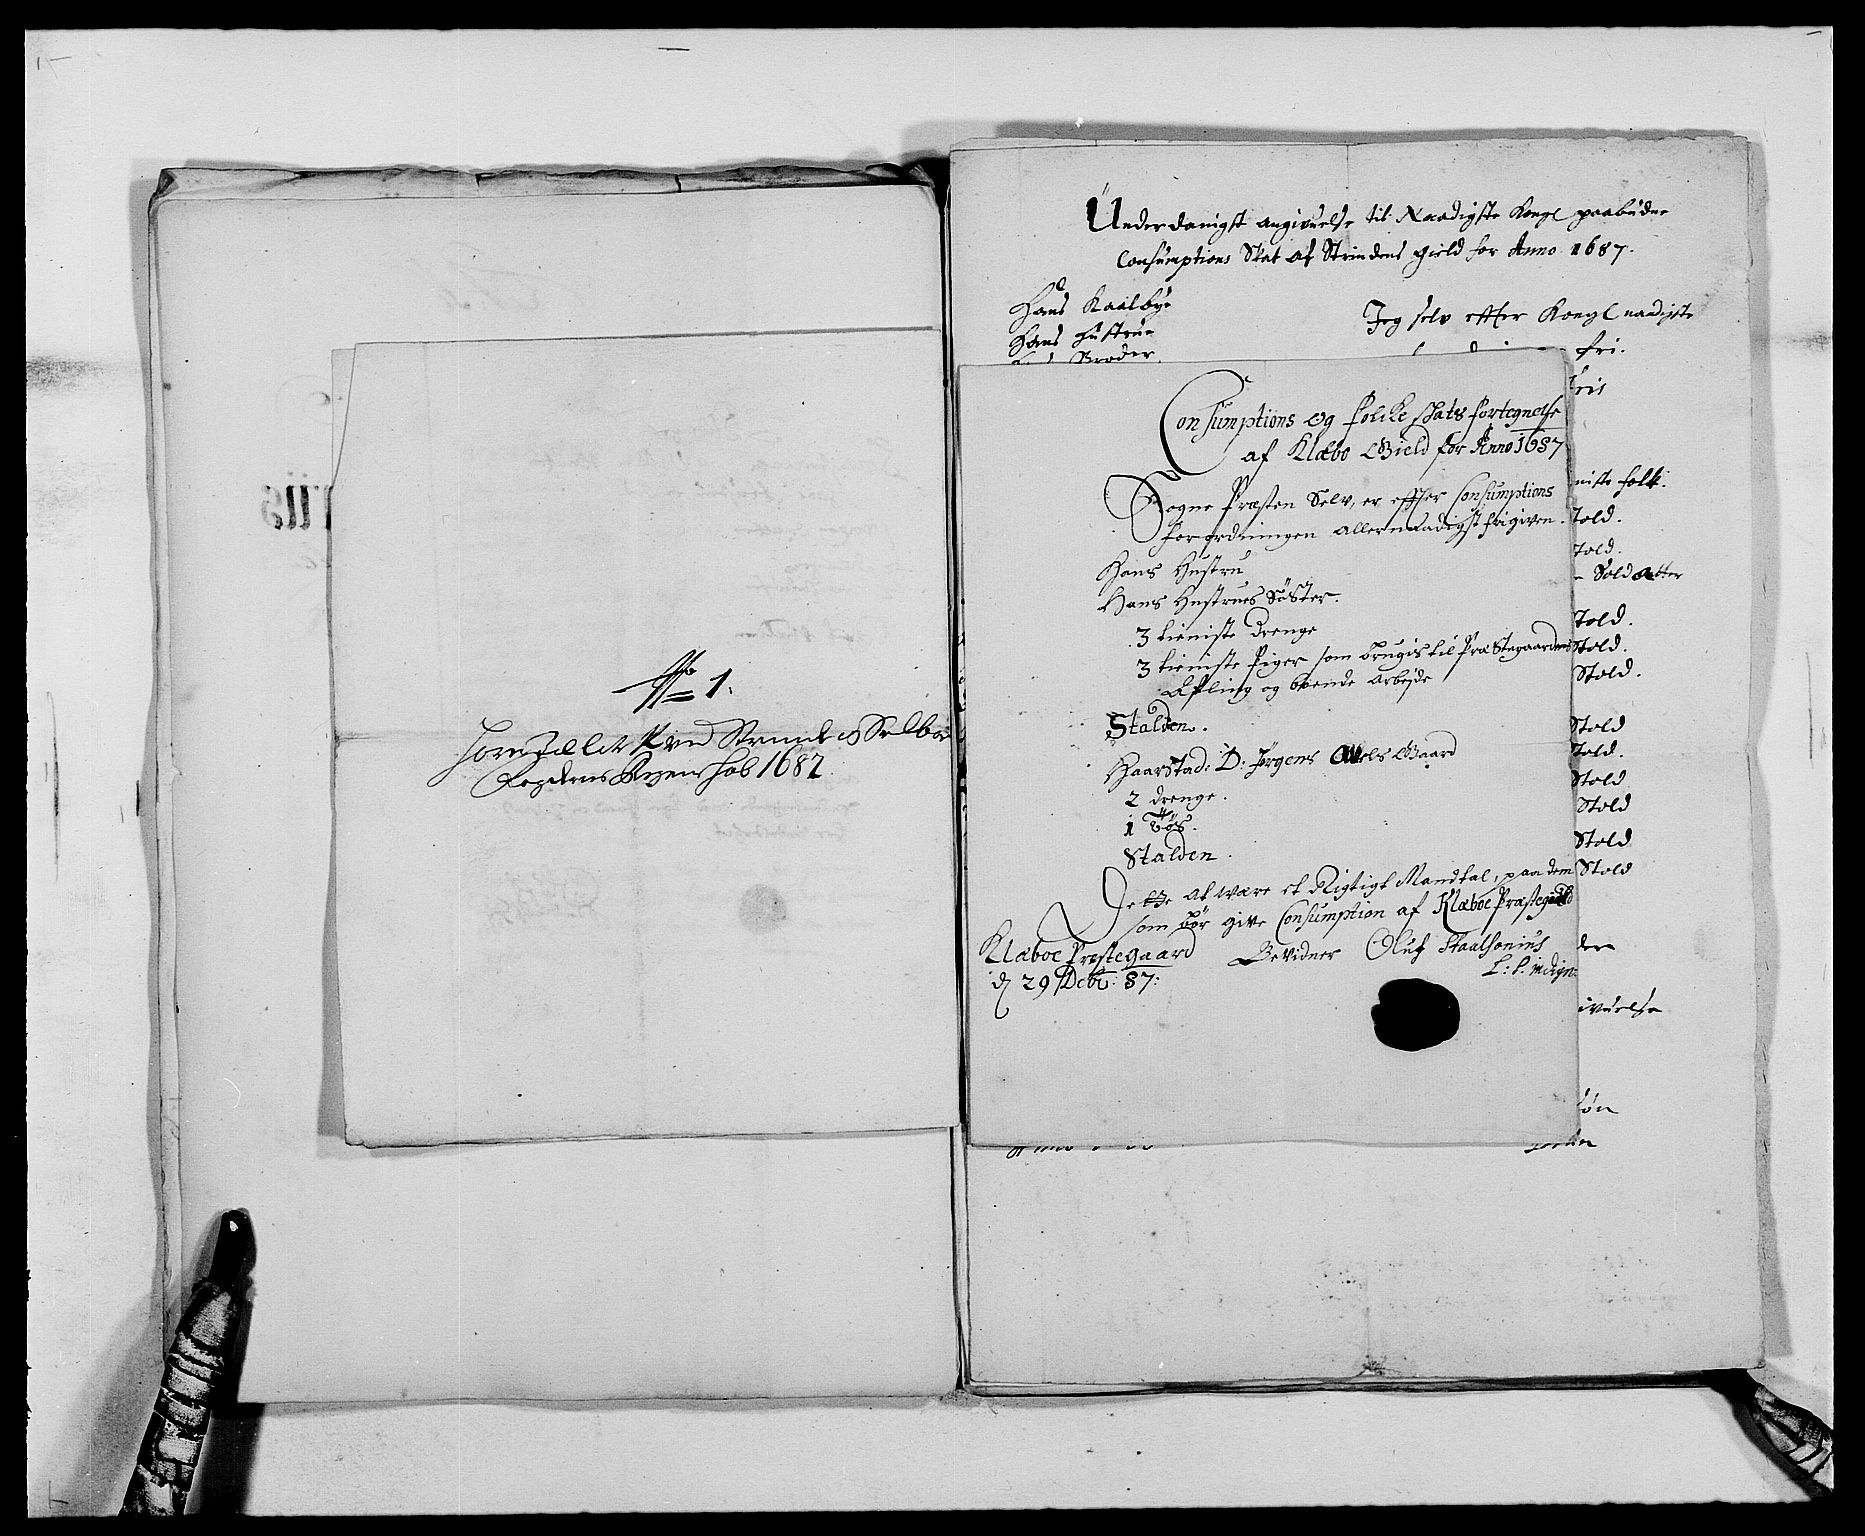 No 1.
Strinde og Selboe
Fogderies Regenskab 1687
Underdanigst angivelse til Naadigste Kongl paabudne
Consumptions Skat af Strindens gield for Anno 1687.
Hans Kaalbye
Hans hustrue
Broder
Jeg selv effter Kongl naadigste
fri.
Consumptions og folcke skats fortegnelse
af Klæbo Gield for Anno 1687
Sogne Præsten Selv, er effter Consumptions
forordningen allernaadigst frigiven.
Hans Hustru
Hans Hustrues Søster.
3 tieniste drenge
3 tieniste Piger som brugis til Præstegaardens
Afling og bvende Arbejde
Stalden.
Haarstad: D: Jørgens Gaard
2 drenge.
1 Tøs.
Stalden.
Dette at være et Rigtigt Mandtal, paa dem
som bør give Consumption af Klæboe Præstegield
Klæboe Præstegaard Bevidner Oluf Staalsonius
d 29 Debr: 87:
niste folk.
Told.
Told.
Soldatter
Told.
Stold.
Stold.
Stold
Told.
Stold
Stold
Stold
Stold